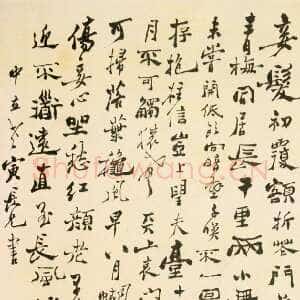 妾髮初覆額折花門
青梅同居長干里兩小無
未嘗開低頭向暗壁千喚不一回
存抱柱信豈上望夫臺十
月不可觸猿聲天上哀門
可掃落葉秋風早八月蝴
傷妾心坐愁紅顏老早
近不道遠直至長風
寅長兄書